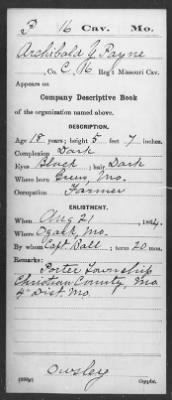 P 16 Cav. Mo.
Archibald Y. Payne
, Co. C, 16 Reg't Missouri Cav.
Appears on
Company Descriptive Book
of the organization named above.
DESCRIPTION.
Age 18 years; height 5 feet 7 inches.
Complexion Dark
Eyes Black; hair Dark
Where born Green, Mo.
Occupation Farmer
ENLISTMENT.
When Aug 21, 1864.
Where Ozark, Mo.
By whom Capt Ball; term 20 mos.
Remarks:
Porter Township
Christian County, Mo
4" Dist. Mo.
Owsley
Copyist.